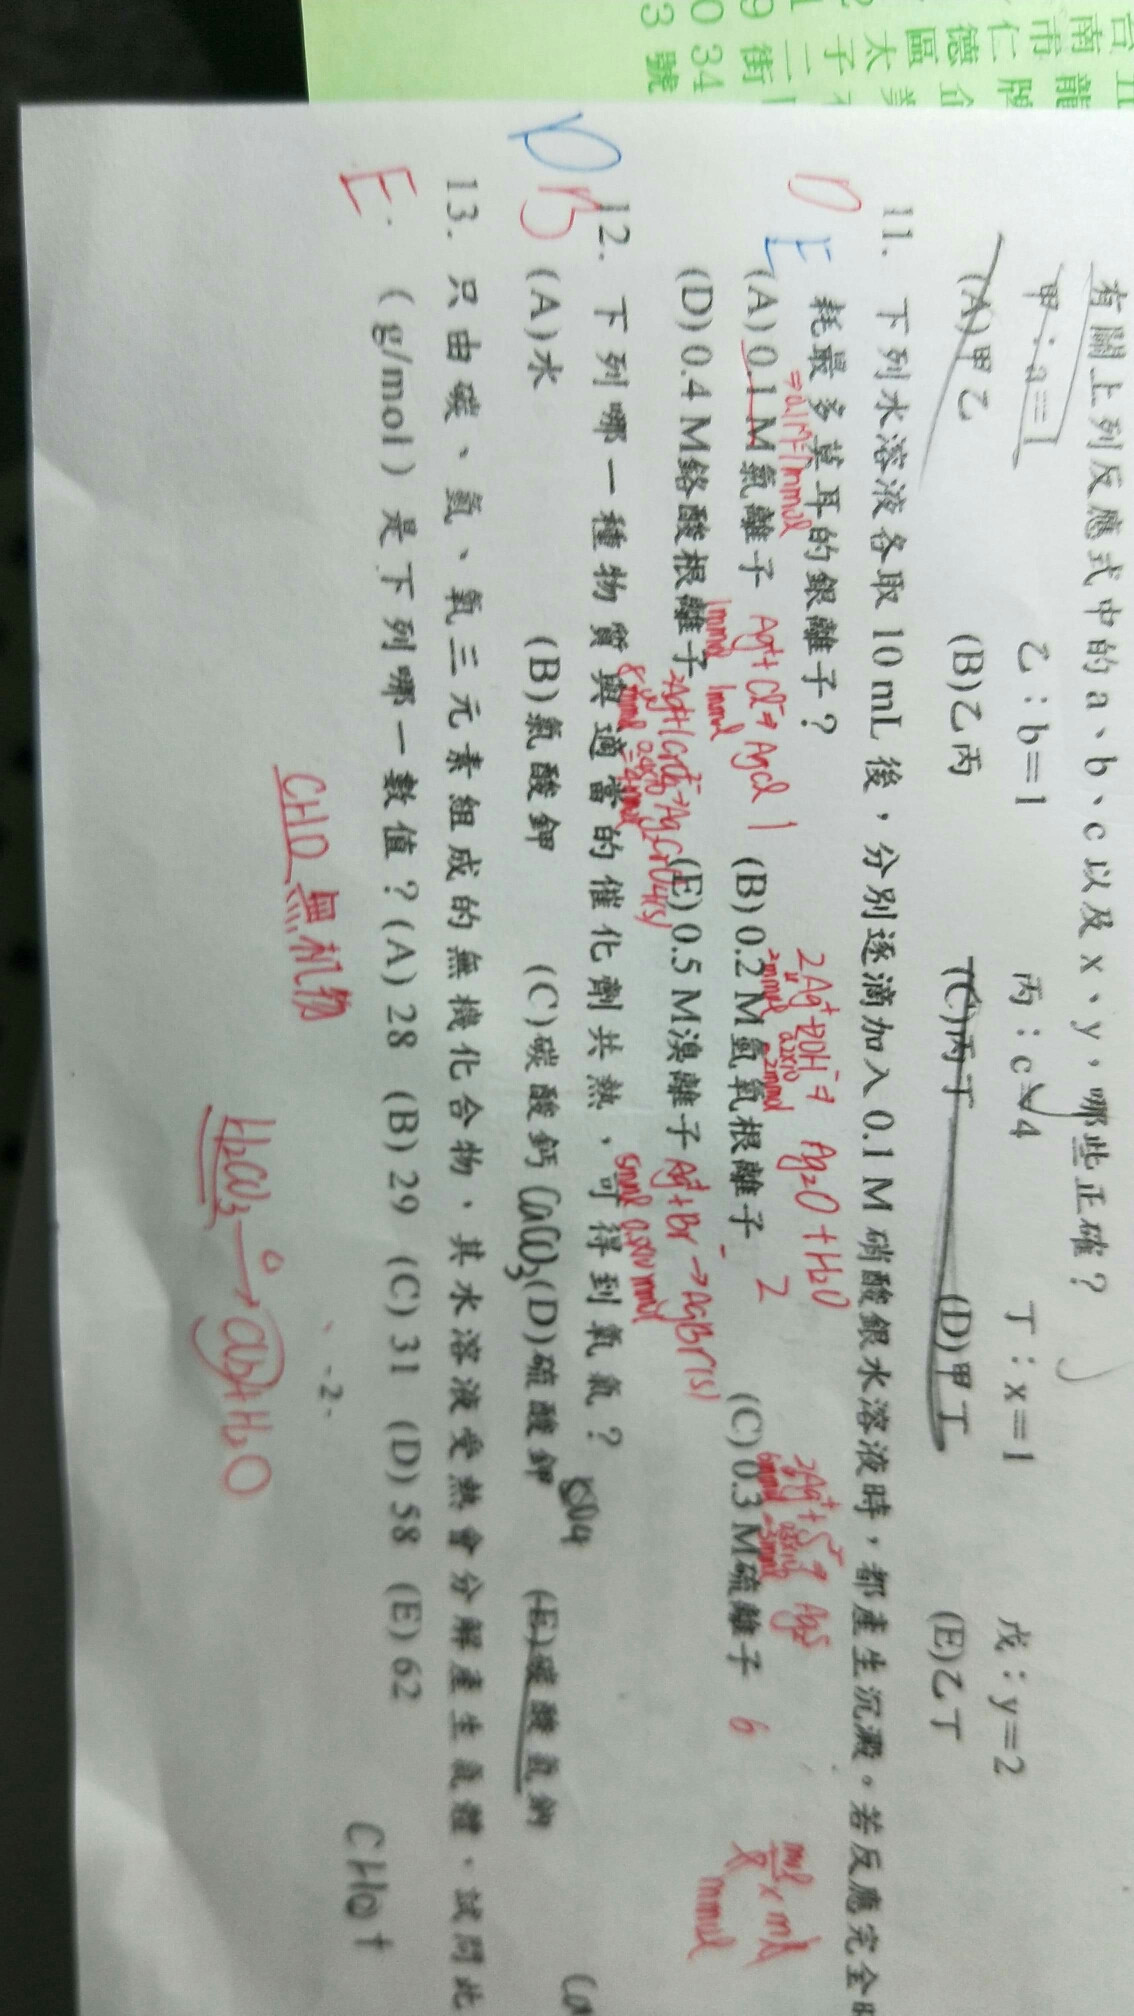 有關上列反應式中的 a、b、c 以及 x、y，哪些正確？
甲：a=1 乙：b=1 丙：c=4 丁：x=1 戊：y=2
(A)甲乙 (B)乙丙 (C)丙丁 (D)甲丁 (E)乙丁
11. 下列水溶液各取 10 mL 後，分別逐滴加入 0.1 M 硝酸銀水溶液時，都產生沉澱。若反應完全時
D E
耗最多莫耳的銀離子？
=0.1M=1mmol
2Ag⁺+2OH⁻→ Ag₂O+H₂O
2Ag⁺+S²⁻→ Ag₂S
(A) 0.1 M 氯離子 Ag⁺+Cl⁻→ AgCl 1 (B) 0.2 M 氫氧根離子 2 (C) 0.3 M 硫離子 6
1mmol 1mmol
(D) 0.4 M 鉻酸根離子 (E) 0.5 M 溴離子 Ag⁺+Br⁻→AgBr(s)
2Ag⁺+CrO₄²⁻→Ag₂CrO₄(s)
mmol
12. 下列哪一種物質與適當的催化劑共熱，可得到氧氣？
D B
(A)水 (B)氯酸鉀 (C)碳酸鈣 CaCO₃ (D)硫酸鉀 (E)碳酸氫鈉
13. 只由碳、氫、氧三元素組成的無機化合物，其水溶液受熱會分解產生氣體，試問此
E
(g/mol) 是下列哪一數值？(A) 28 (B) 29 (C) 31 (D) 58 (E) 62
CHO 無机物
-2-
H₂CO₃ →Δ CO₂+H₂O